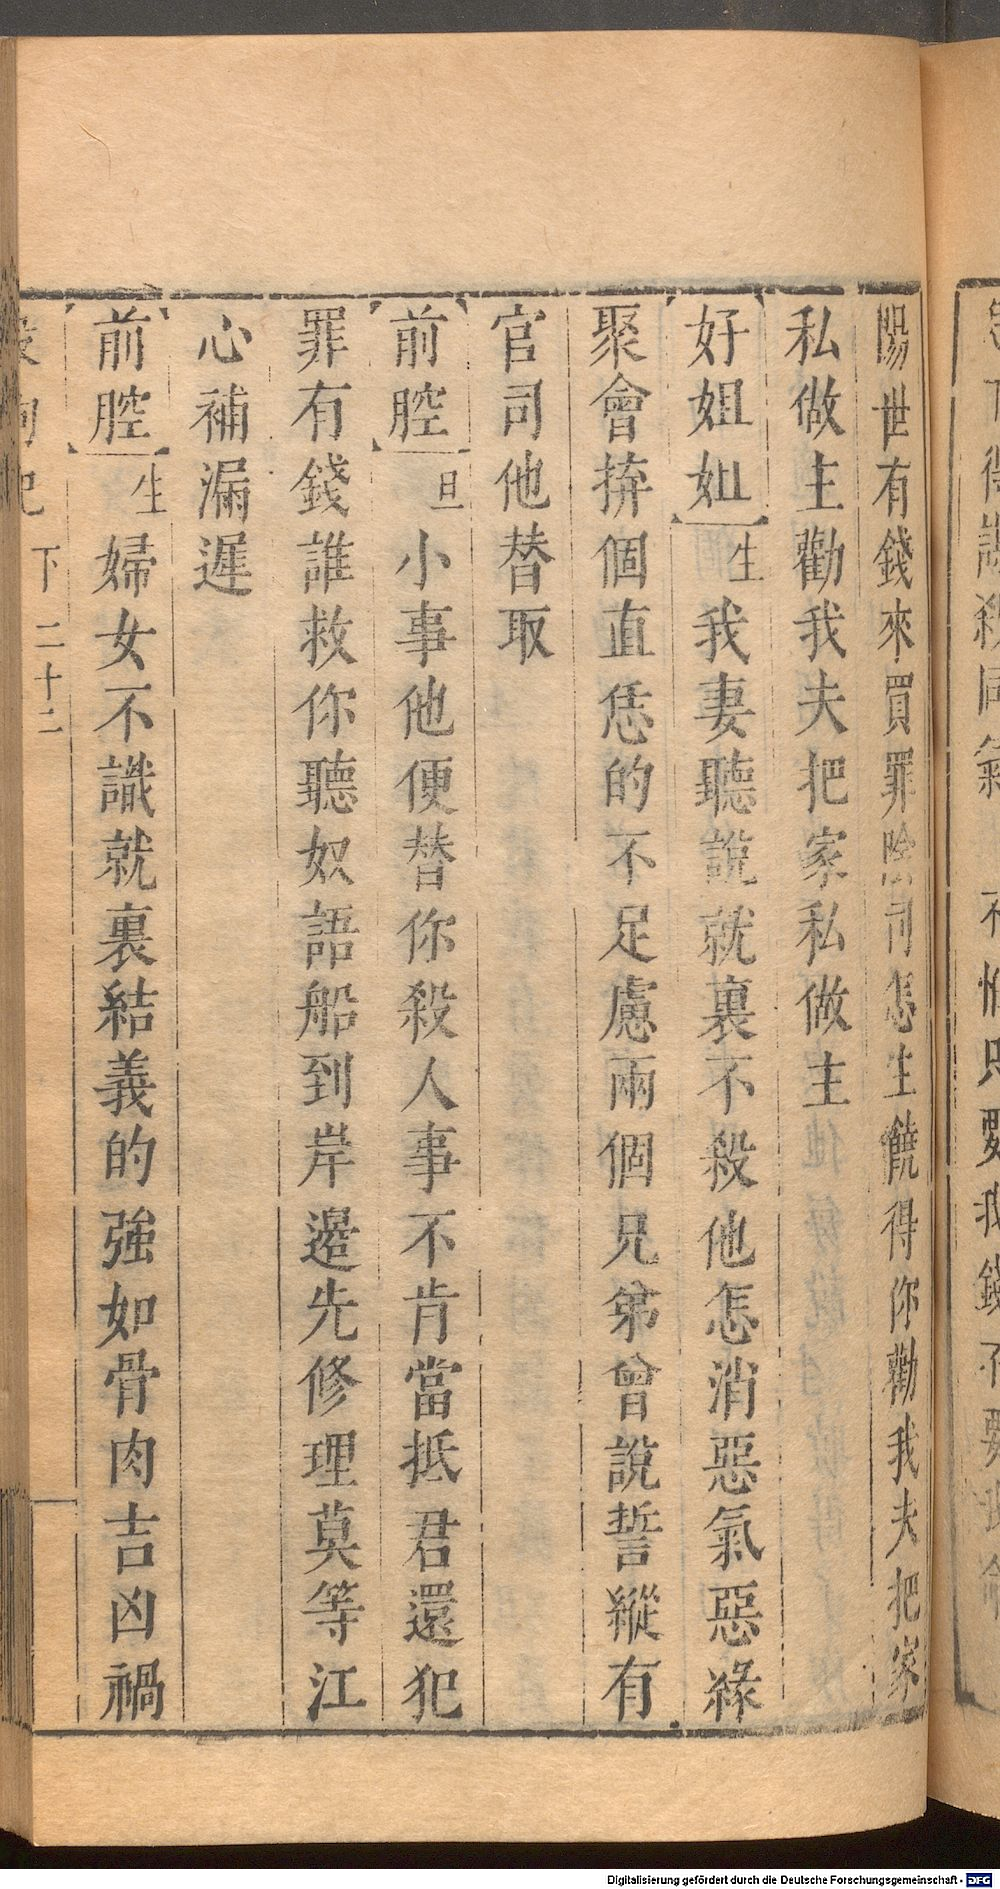 陽世有錢來買罪陰司怎生饒得你勸我夫把家
私做主勸我夫把家私做主
好姐姐生我妻聽說就裏不殺他怎消惡氣惡緣
聚會拚個直恁的不足慮兩個兄弟曾說誓縱有
官司他替取
前腔旦小事他便替你殺人事不肯當抵君還犯
罪有錢誰救你聽奴語船到岸邊先修理莫等江
心補漏遲
前腔生婦女不識就裏結義的強如骨肉吉凶禍
殺狗記 下 二十二
Digitalisierung gefördert durch die Deutsche Forschungsgemeinschaft - DFG